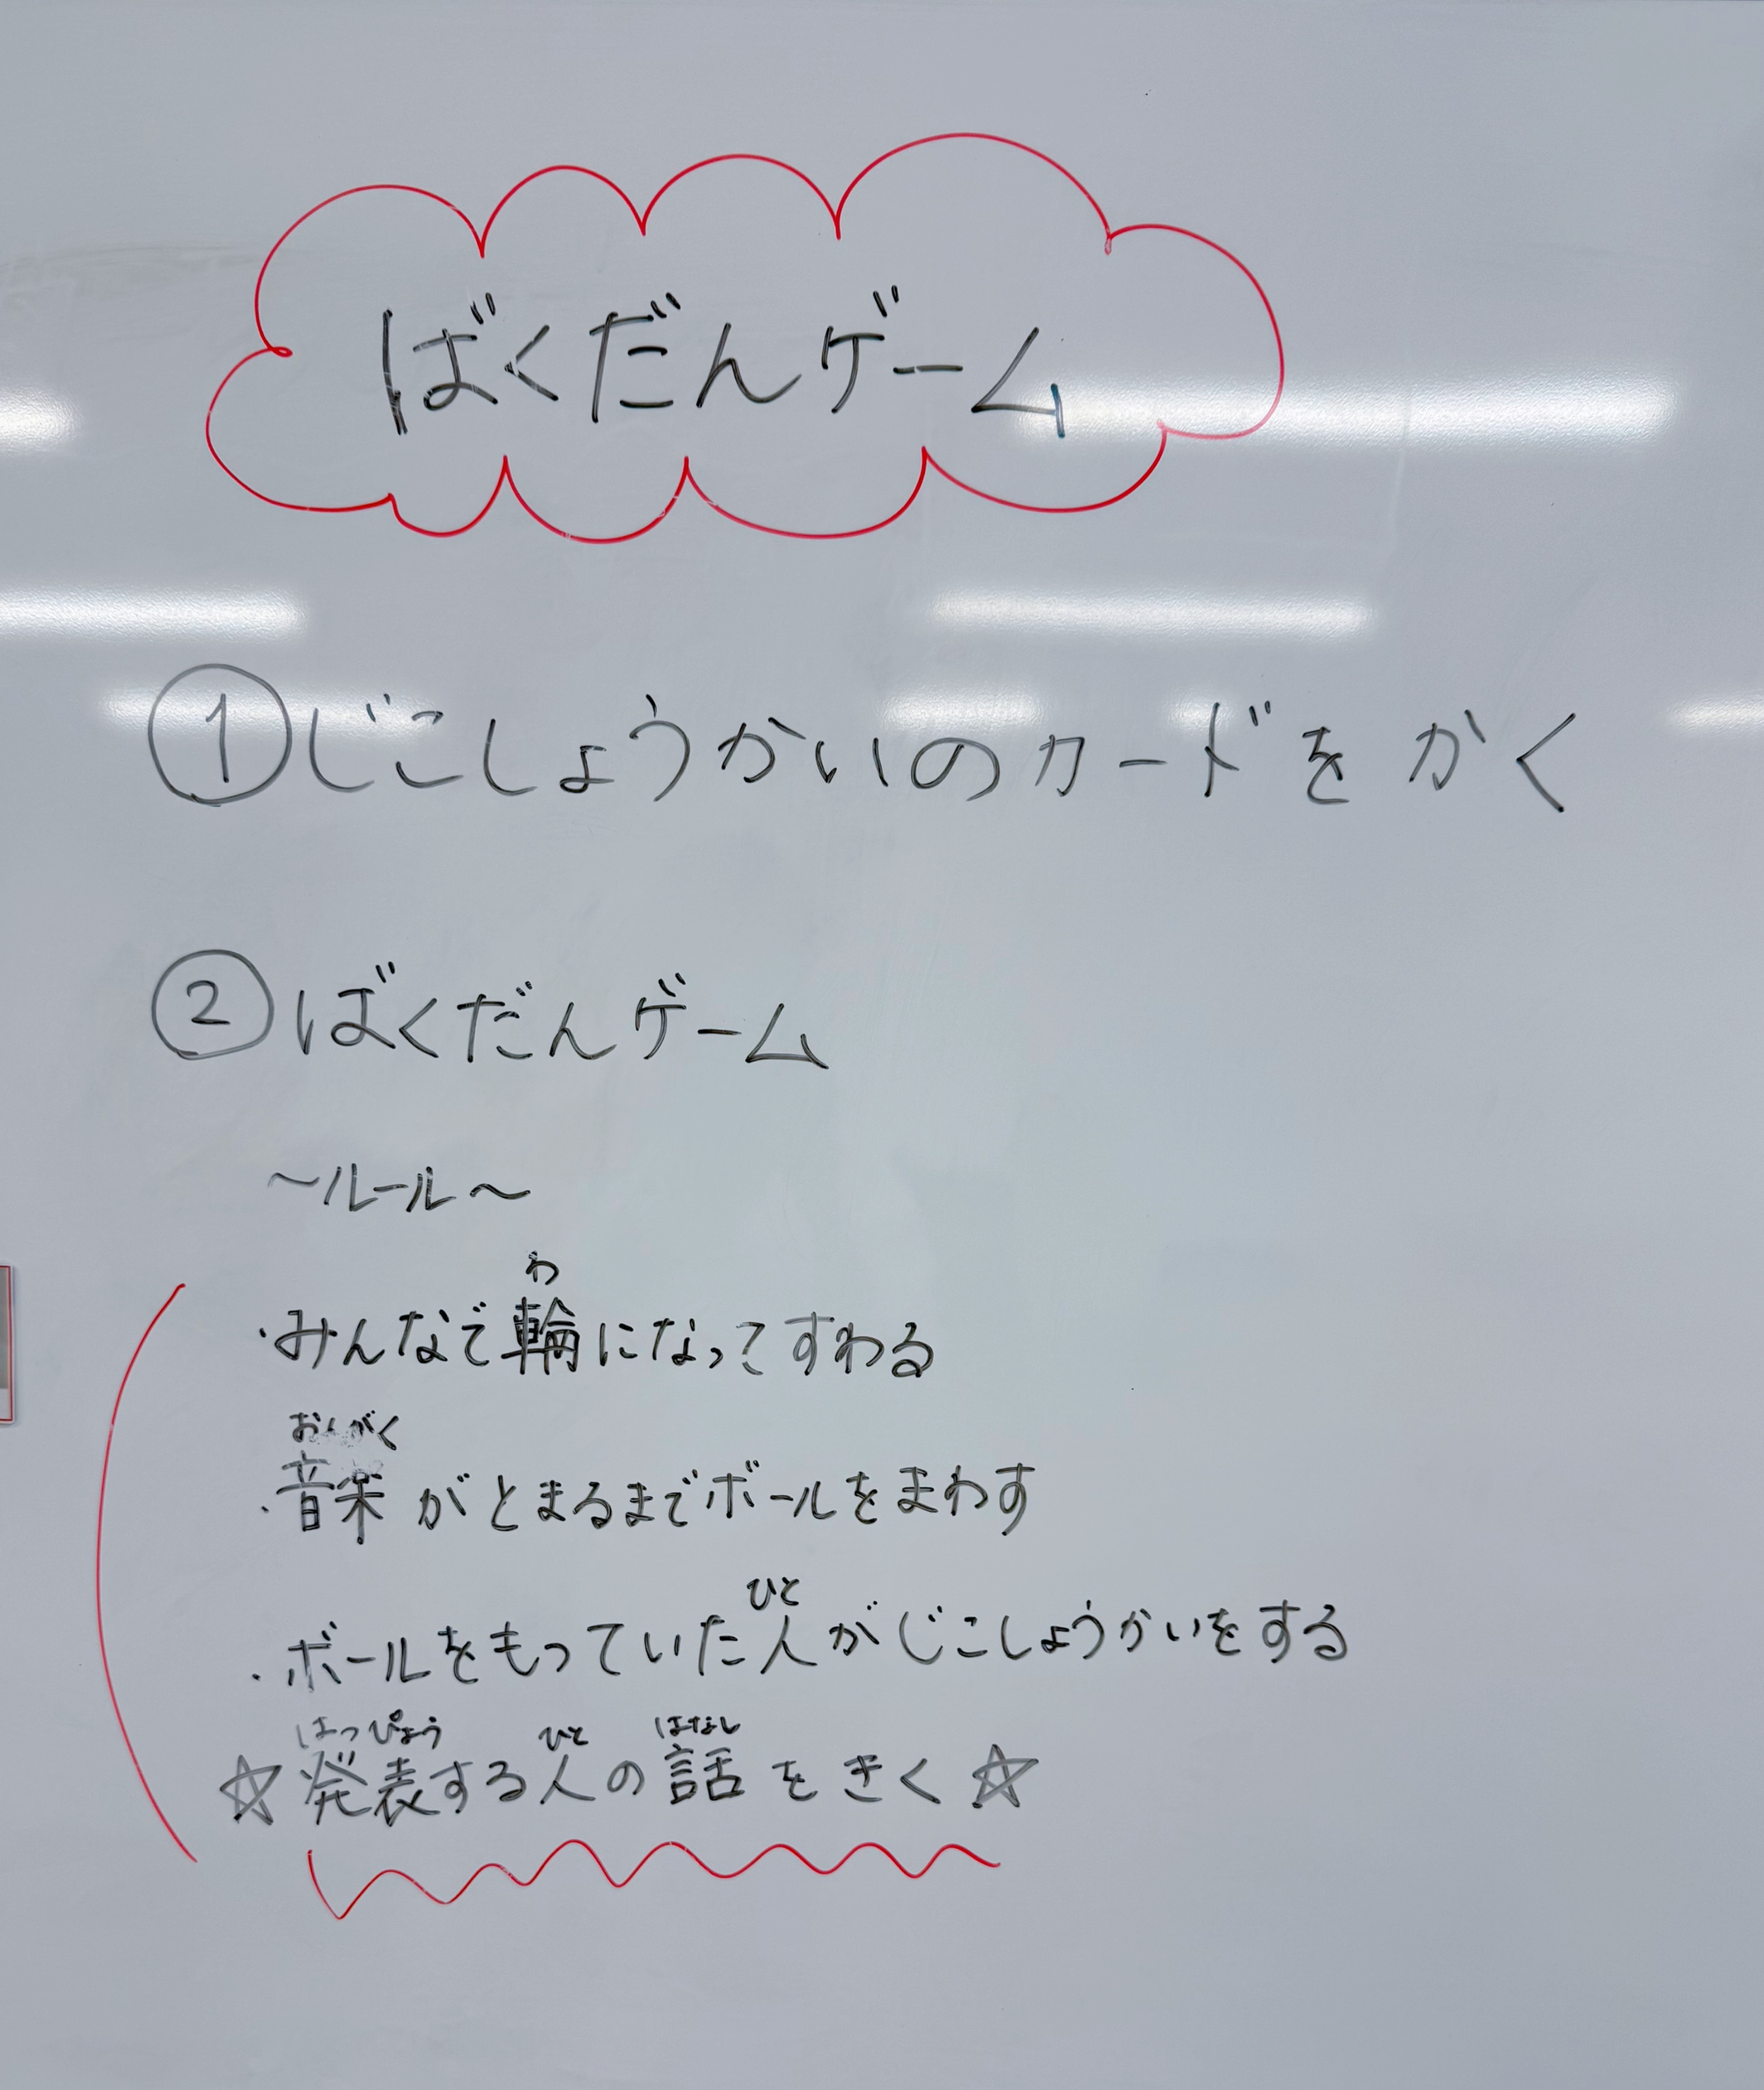 ばくだんゲーム
①じこしょうかいのカードをかく
②ばくだんゲーム
〜ルール〜
わ
・みんなで輪になってすわる
おんがく
・音楽がとまるまでボールをまわす
ひと
・ボールをもっていた人がじこしょうかいをする
はっぴょう ひと はなし
☆発表する人の話をきく☆